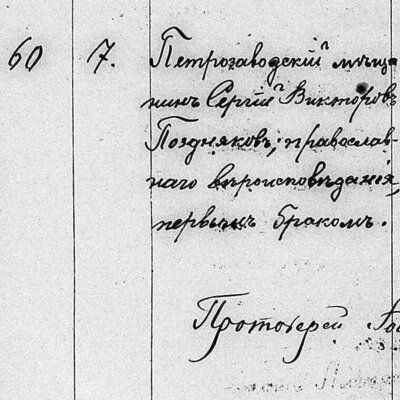 60 7. Петрозаводскій мѣща
нинъ Сергій Викторовъ
Поздняковъ, православ-
наго вѣроисповѣданія,
первымъ бракомъ.
Протоіерей